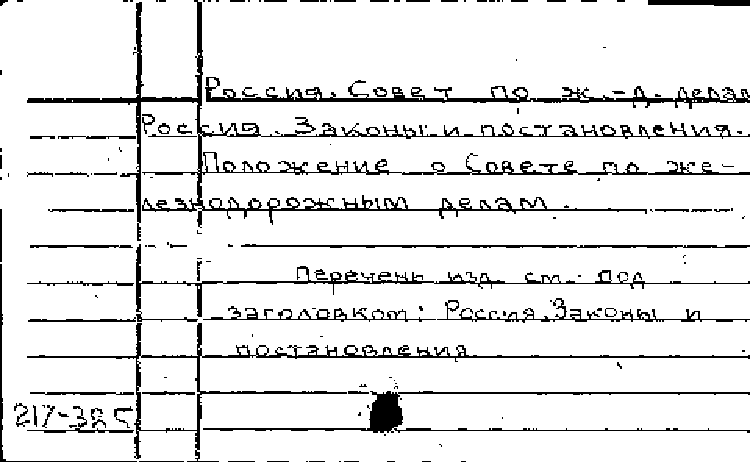 Россия. Совет по ж.-д. делам
Россия. Законы и постановления.
Положение о Совете по же-
лезнодорожным делам.
Перечень изд. см. под
заголовком: Россия. Законы и
постановления.
217-385